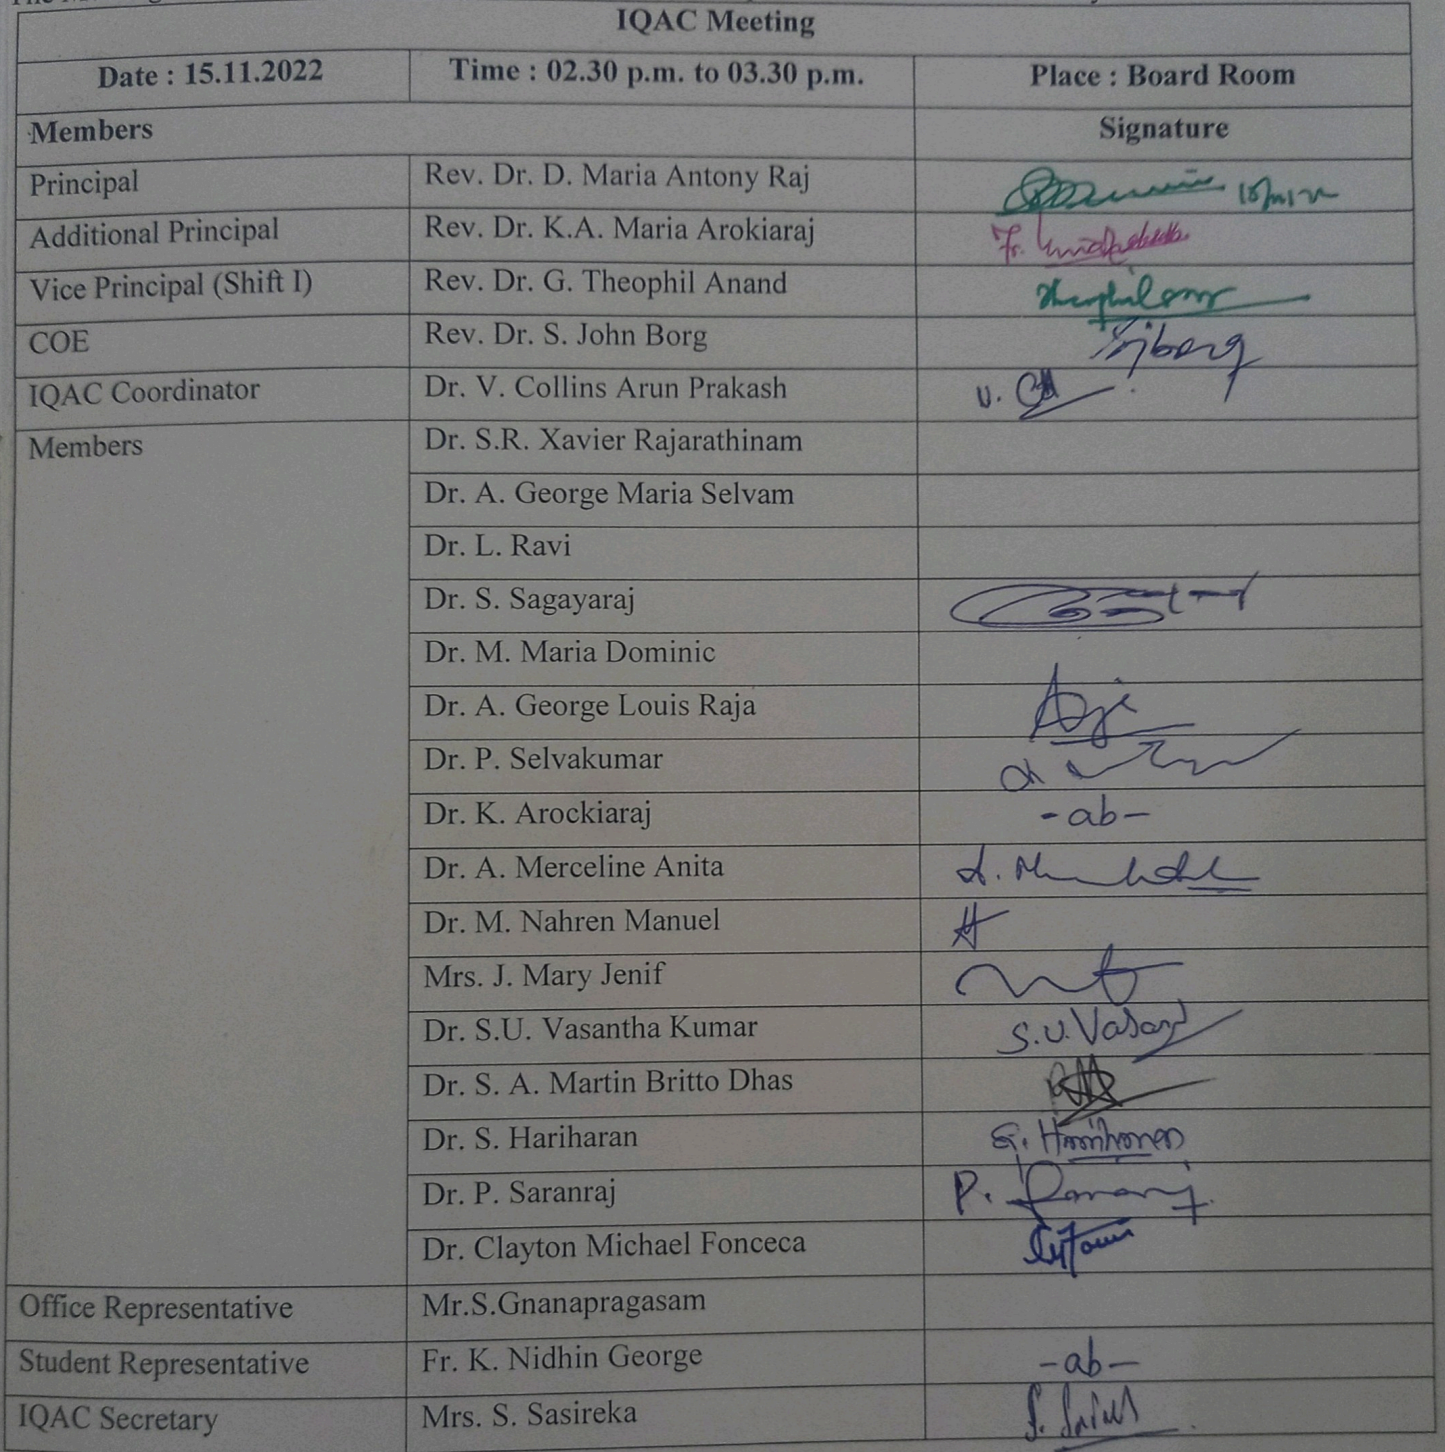 IQAC Meeting
Date : 15.11.2022 Time : 02.30 p.m. to 03.30 p.m. Place : Board Room
Members Signature
Principal Rev. Dr. D. Maria Antony Raj
Additional Principal Rev. Dr. K.A. Maria Arokiaraj Fr.
Vice Principal (Shift I) Rev. Dr. G. Theophil Anand
COE Rev. Dr. S. John Borg
IQAC Coordinator Dr. V. Collins Arun Prakash V.
Members Dr. S.R. Xavier Rajarathinam
Dr. A. George Maria Selvam
Dr. L. Ravi
Dr. S. Sagayaraj
Dr. M. Maria Dominic
Dr. A. George Louis Raja
Dr. P. Selvakumar
Dr. K. Arockiaraj -ab-
Dr. A. Merceline Anita
Dr. M. Nahren Manuel
Mrs. J. Mary Jenif
Dr. S.U. Vasantha Kumar S.U.
Dr. S. A. Martin Britto Dhas
Dr. S. Hariharan
Dr. P. Saranraj P.
Dr. Clayton Michael Fonceca
Office Representative Mr.S.Gnanapragasam
Student Representative Fr. K. Nidhin George -ab-
IQAC Secretary Mrs. S. Sasireka